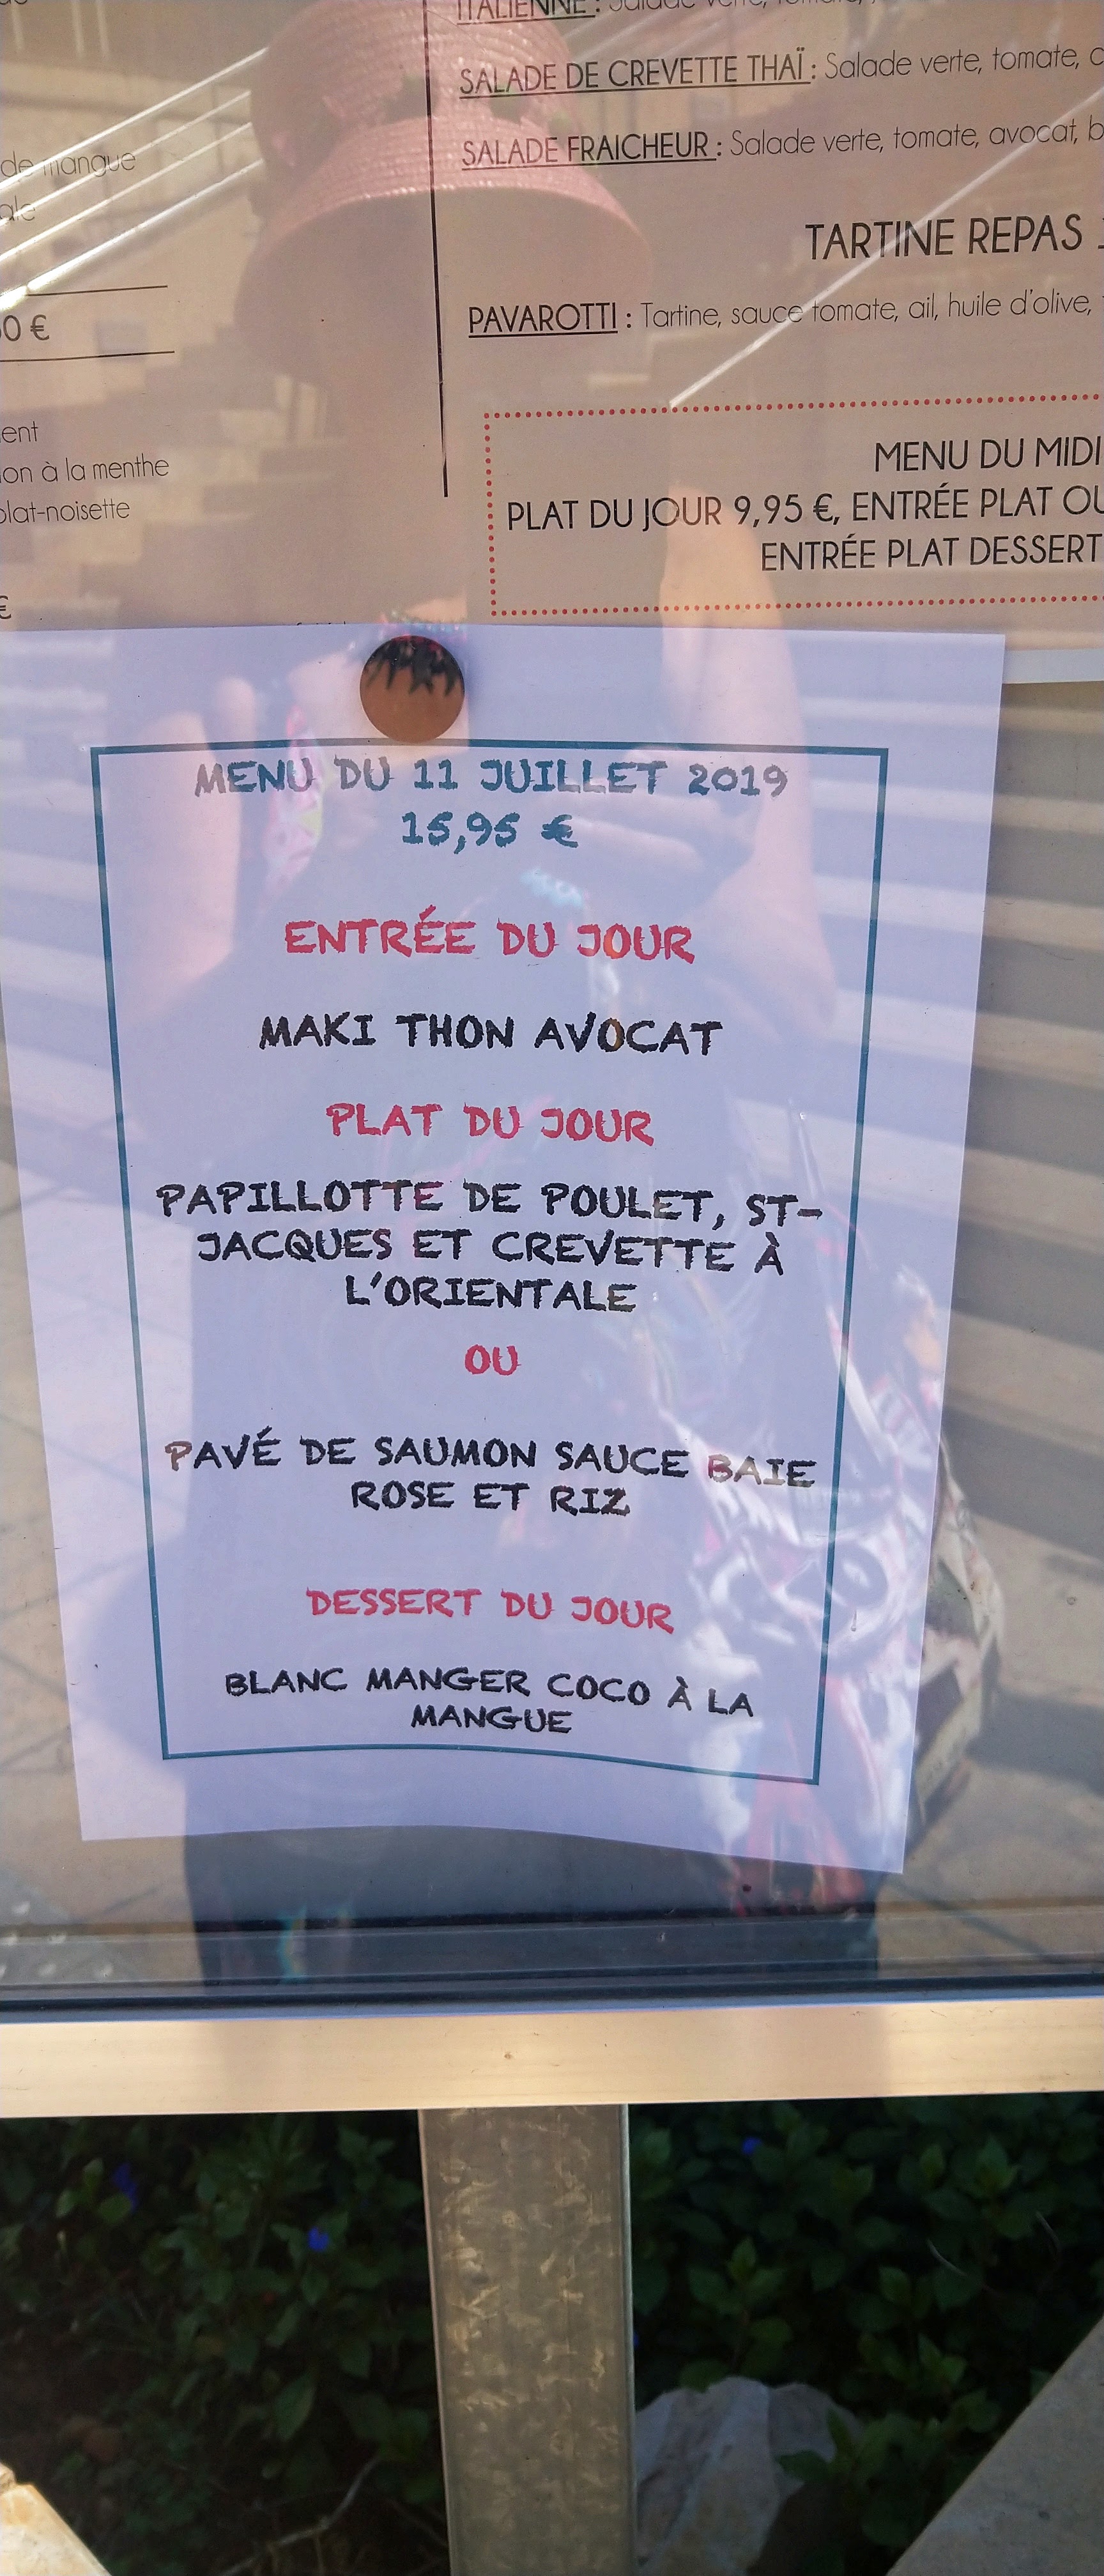 ITALIENNE : Salade verte, tomate,
SALADE DE CREVETTE THAÏ : Salade verte, tomate, c
SALADE FRAICHEUR : Salade verte, tomate, avocat, b
de mangue
ale
TARTINE REPAS
PAVAROTTI : Tartine, sauce tomate, ail, huile d'olive,
0 €
ent
on à la menthe
olat-noisette
€
MENU DU MIDI
PLAT DU JOUR 9,95 €, ENTRÉE PLAT OU
ENTRÉE PLAT DESSERT
MENU DU 11 JUILLET 2019
15,95 €
ENTRÉE DU JOUR
MAKI THON AVOCAT
PLAT DU JOUR
PAPILLOTTE DE POULET, ST-
JACQUES ET CREVETTE À
L'ORIENTALE
OU
PAVÉ DE SAUMON SAUCE BAIE
ROSE ET RIZ
DESSERT DU JOUR
BLANC MANGER COCO À LA
MANGUE